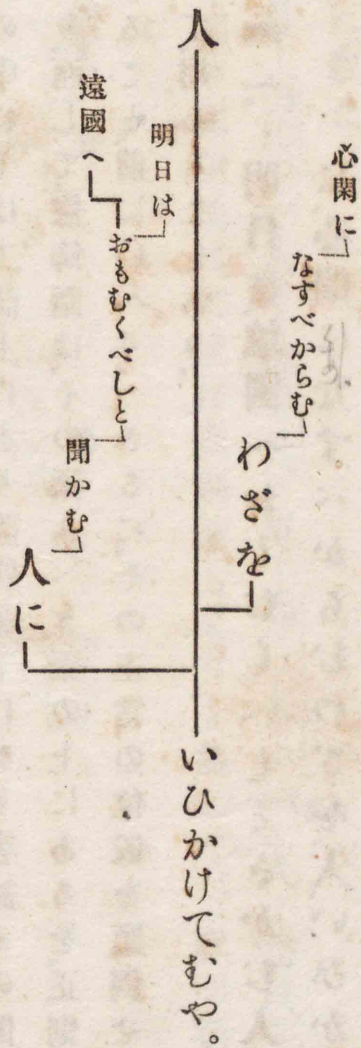 心閑に
なすべからむ
わざを
人
いひかけてむや。
明日は
遠國へ
おもむくべしと
聞かむ
人に